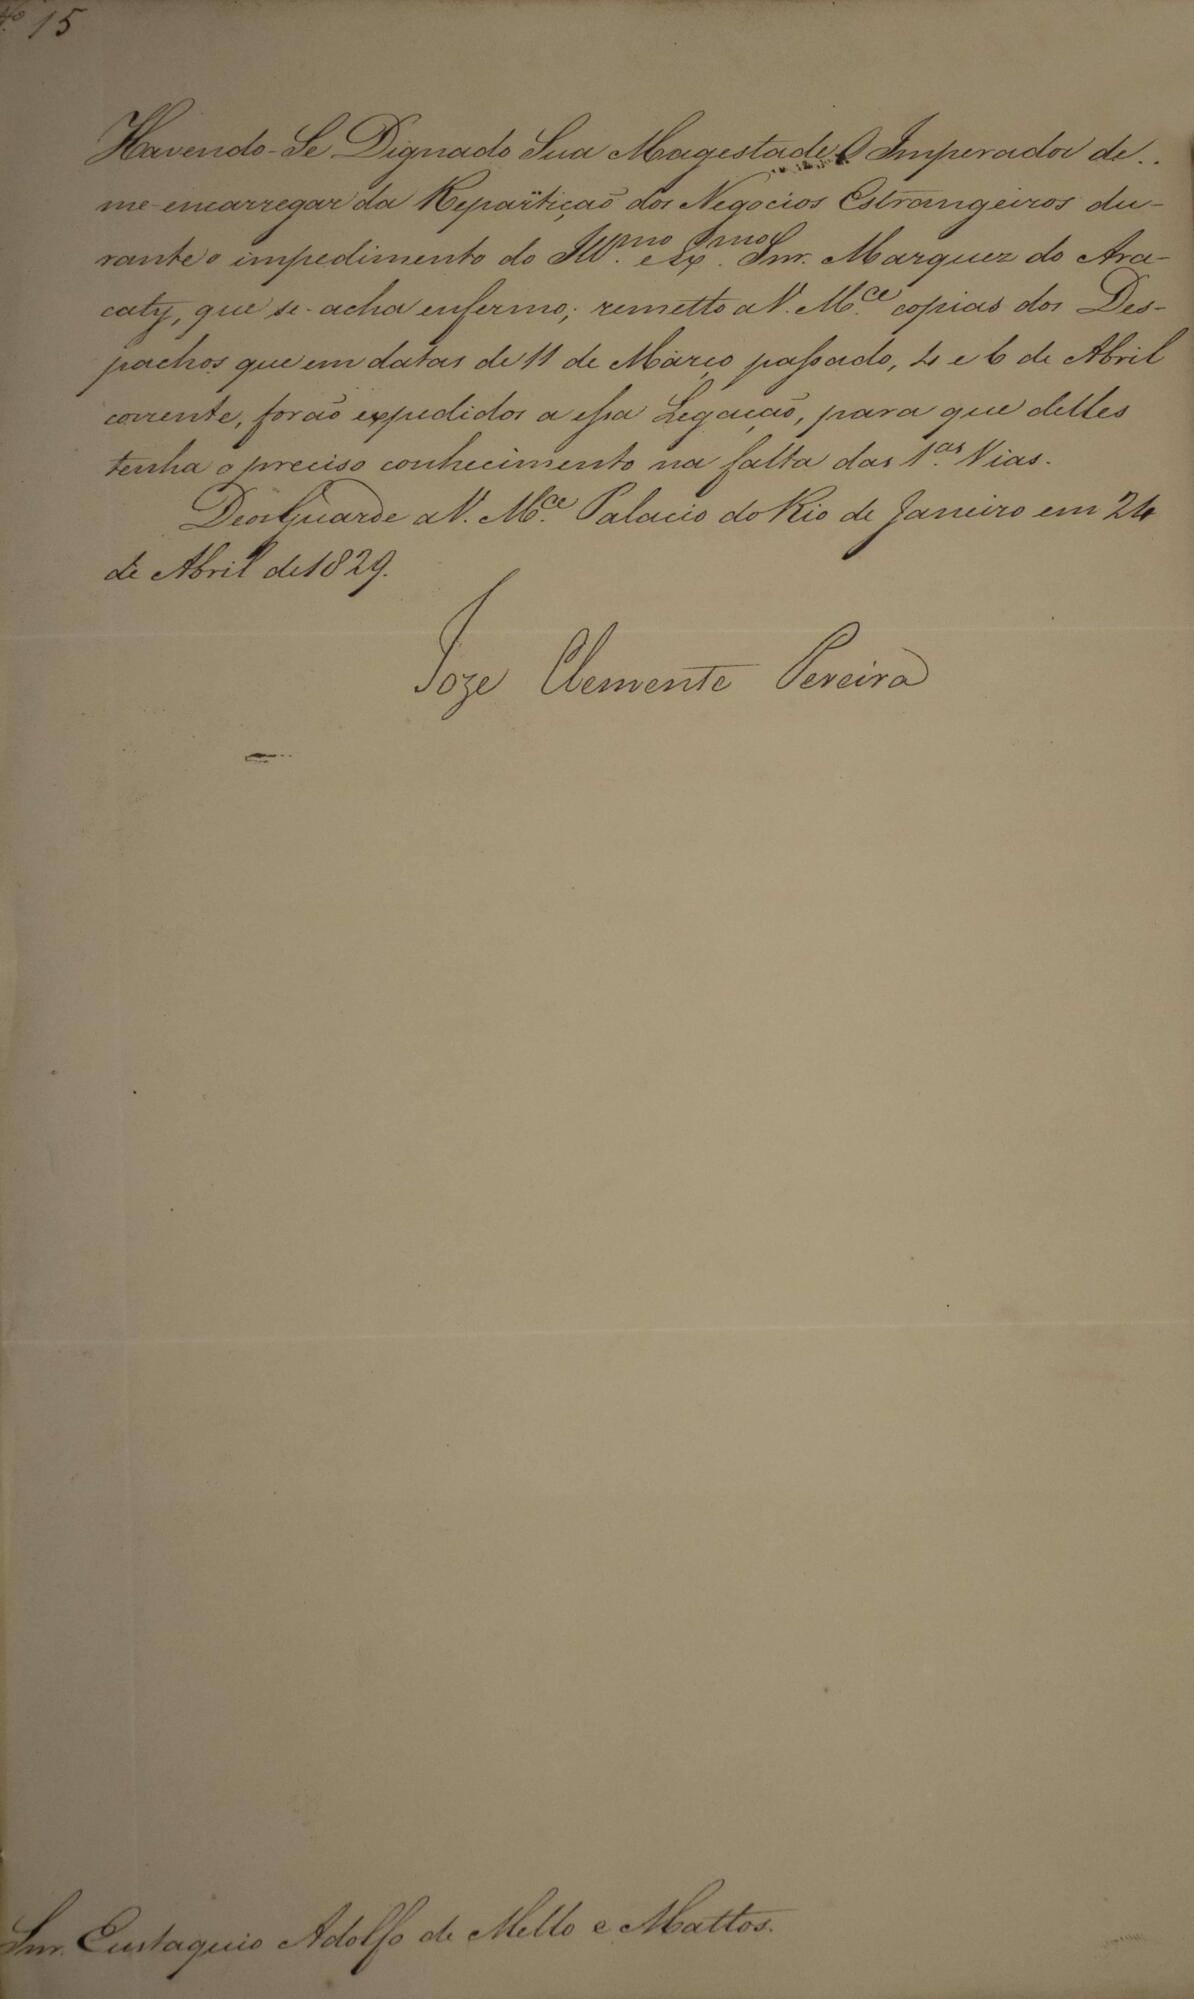 Nº 15
Havendo-Se Dignado Sua Magestade O Imperador de
me encarregar da Repartição dos Negocios Estrangeiros du-
rante o impedimento do Illmo. e Exmo. Snr. Marquez do Ara-
caty, que se acha enfermo; remetto a V. Mce. copias dos Des-
pachos que em datas de 11 de Março passado, 4 e 6 de Abril
corrente, forão expedidos a essa Legação, para que delles
tenha o preciso conhecimento na falta das 1as. Vias.
Deos Guarde a V. Mce. Palacio do Rio de Janeiro em 24
de Abril de 1829.
Joze Clemente Pereira
Snr. Eustaquio Adolfo de Mello e Mattos.